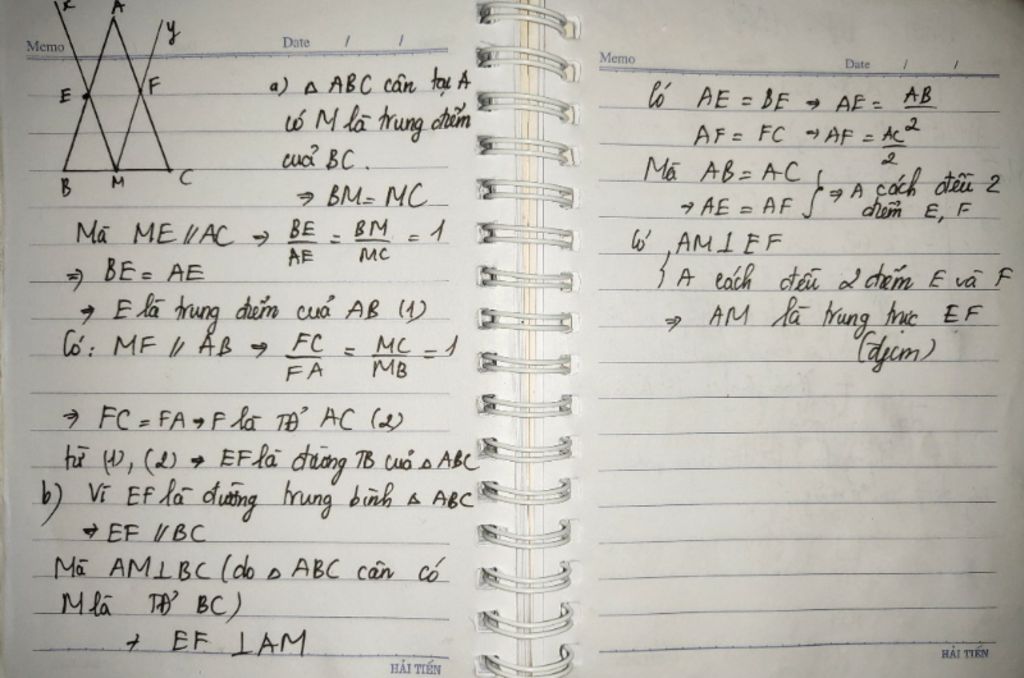 x
A
y
Memo
Date / /
E
F
B
M
C
a) △ ABC cân tại A
có M là trung điểm
của BC.
⇒ BM = MC
Mà ME // AC → BE/AE = BM/MC = 1
⇒ BE = AE
→ E là trung điểm của AB (1)
Có: MF // AB → FC/FA = MC/MB = 1
→ FC = FA → F là TĐ AC (2)
từ (1), (2) → EF là đường TB của △ ABC
b) Vì EF là đường trung bình △ ABC
→ EF // BC
Mà AM ⊥ BC (do △ ABC cân có
M là TĐ BC)
→ EF ⊥ AM
HẢI TIẾN
Memo
Date / /
Có AE = BE → AE = AB/2
AF = FC → AF = AC/2
Mà AB = AC
→ AE = AF } ⇒ A cách đều 2 điểm E, F
Có { AM ⊥ EF
A cách đều 2 điểm E và F
⇒ AM là trung trực EF
(đpcm)
HẢI TIẾN